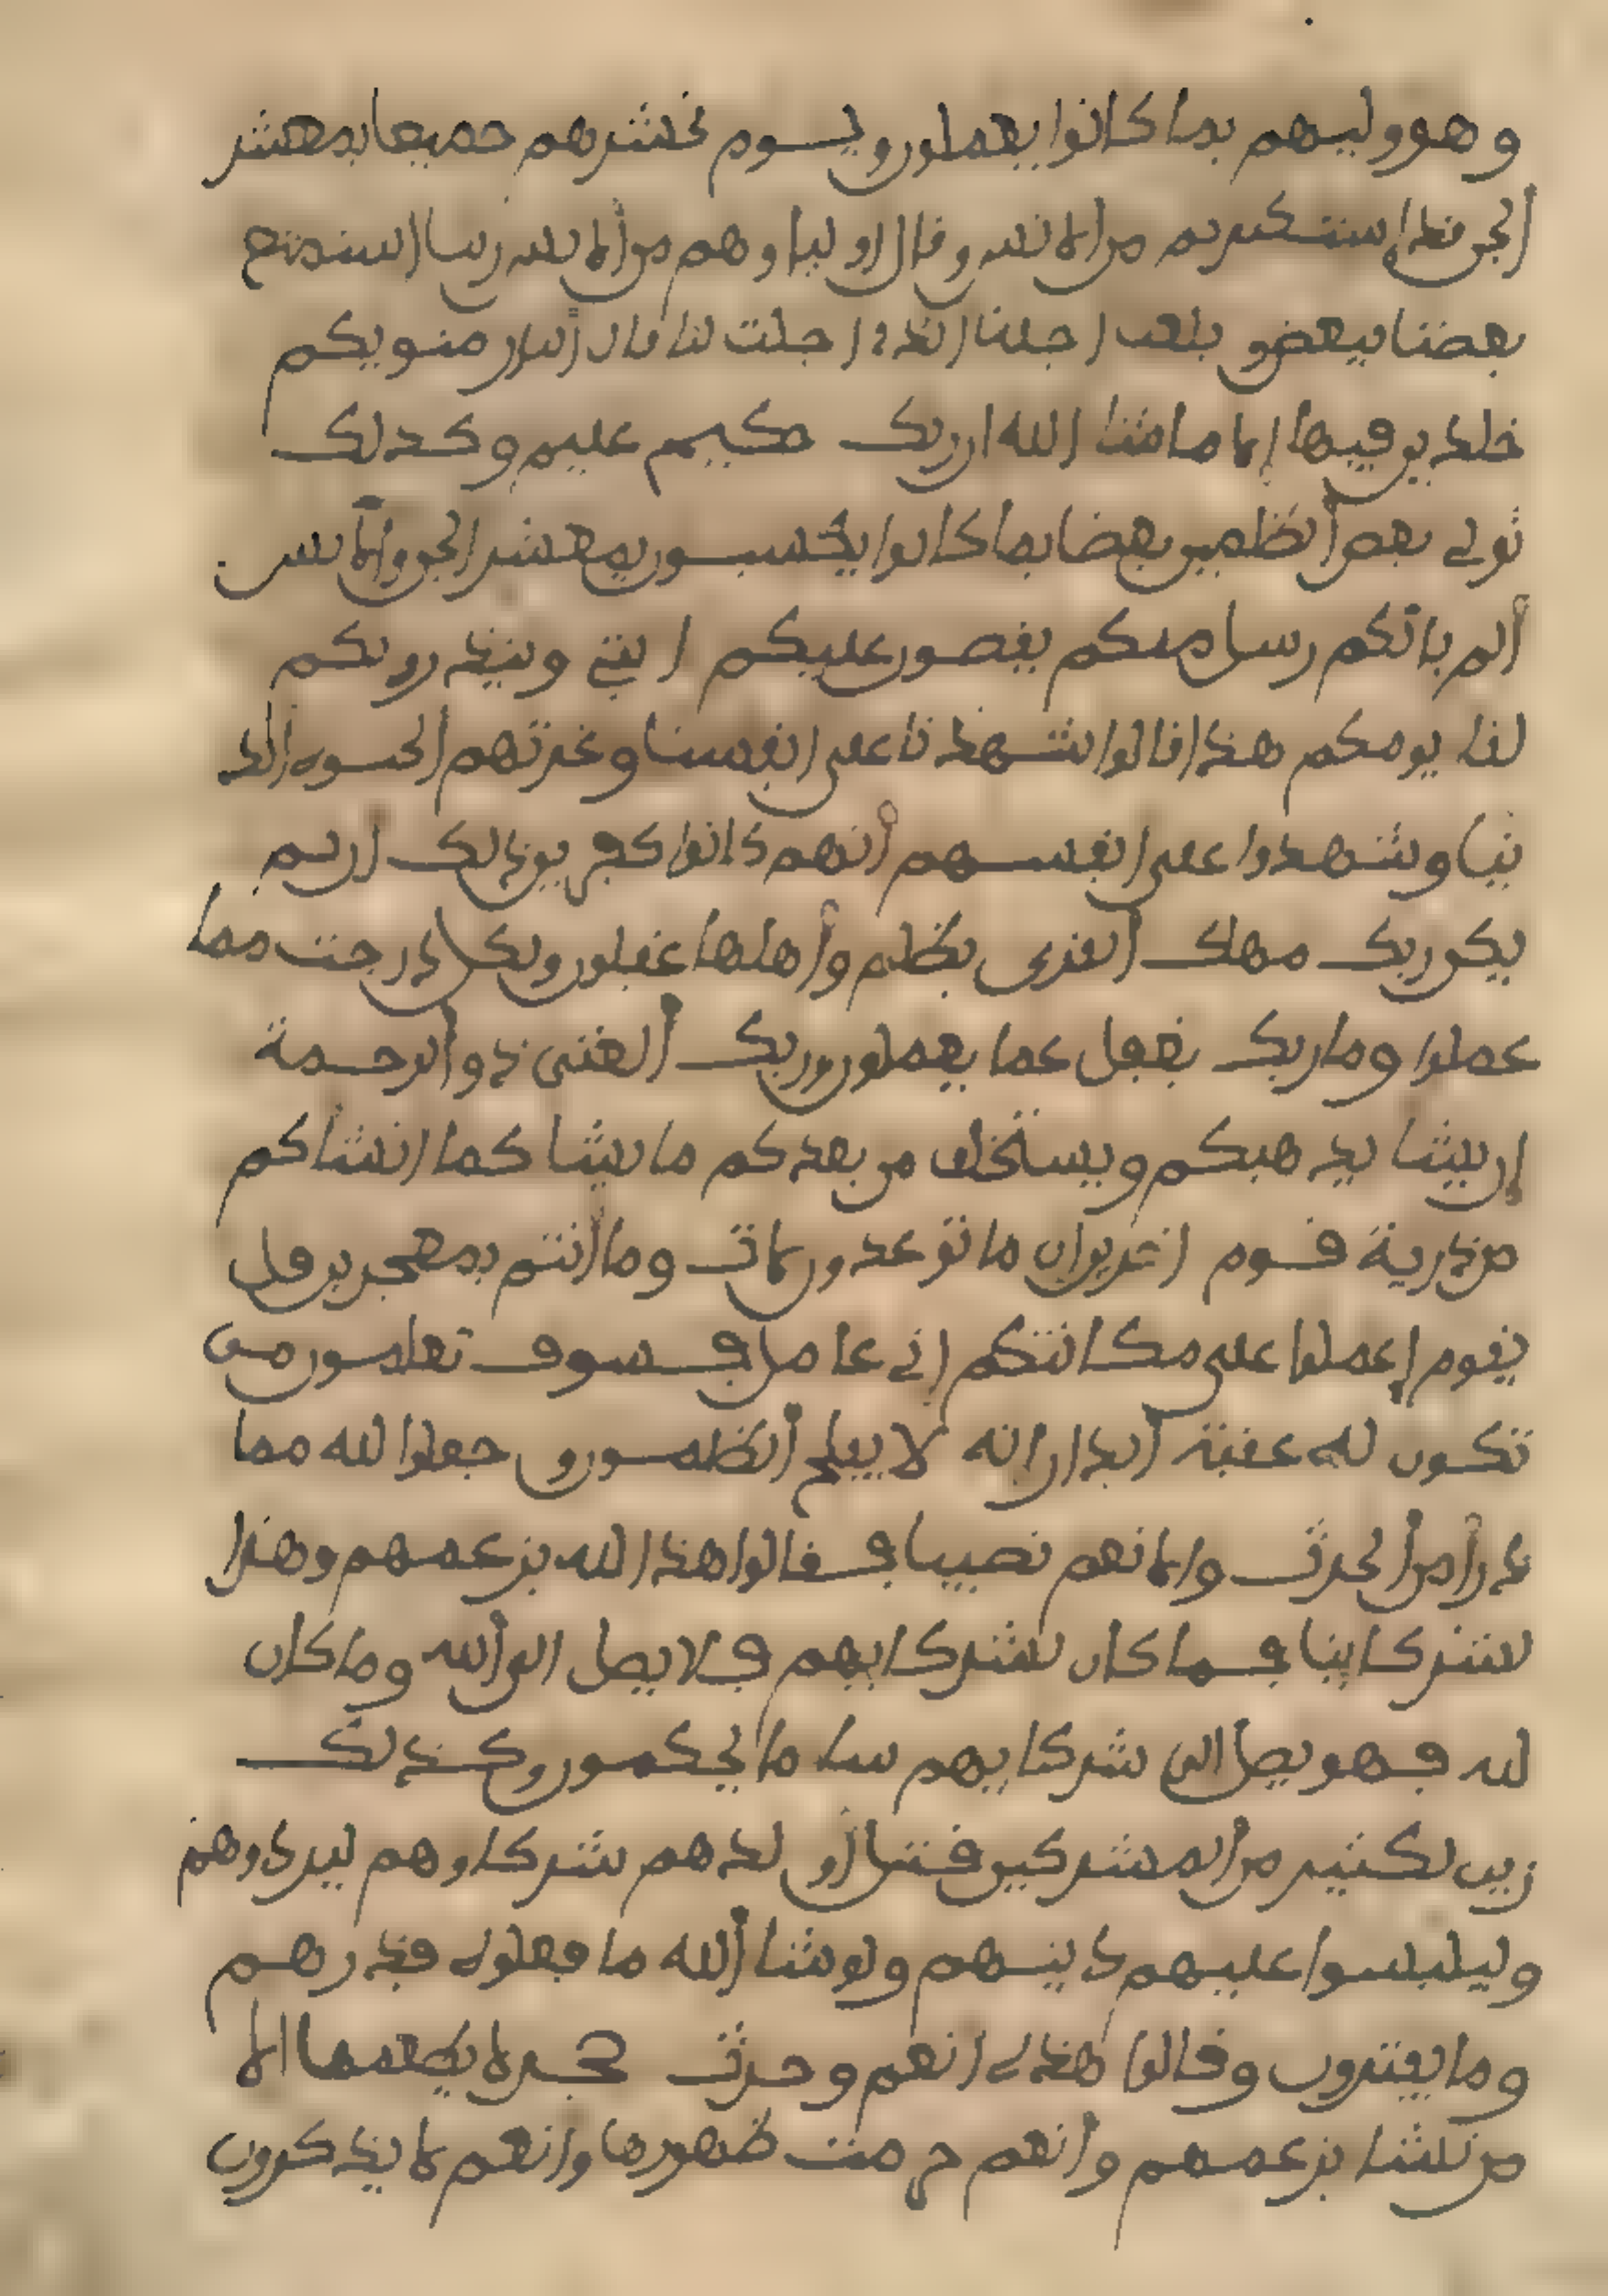 وهو وليهم بما كانوا يعملون ويوم نحشرهم جميعا يمعشر
ألجن قد إستكثرتم من ألانس وقال اولياوهم من ألانس ربنا استمتع
بعضنا ببعض وبلغنا اجلنا الذي اجلت لنا قال ألنار مثويكم
خلدين فيها إلا ما شا الله ان ربك حكيم عليم وكذلك
نولي بعض ألظلمين بعضا بما كانوا يكسبون يمعشر الجن والانس
ألم ياتكم رسل منكم يقصون عليكم ايتي وينذرونكم
لقا يومكم هذا قالوا شهدنا على انفسنا وغرتهم ألحيوه الد
نيا وشهدوا على انفسهم أنهم كانوا كفرين ذلك ان لم
يكن ربك مهلك ألقرى بظلم وأهلها غفلون ولكل درجت مما
عملوا وما ربك بغفل عما يعملون وربك ألغني ذو ألرحمة
إن يشا يذهبكم ويستخلف من بعدكم ما يشا كما انشاكم
من ذرية قوم اخرين ان ما توعدون لات وما أنتم بمعجزين قل
يقوم إعملوا على مكانتكم اني عامل فسوف تعلمون من
تكون له عقبة ألدار انه لا يفلح ألظلمون وجعلوا لله مما
ذرأ من ألحرث والانعم نصيبا فقالوا هذا لله بزعمهم وهذا
لشركاينا فما كان لشركايهم فلا يصل الى ألله وما كان
لله فهو يصل الى شركايهم سا ما يحكمون وكذلك
زين لكثير من ألمشركين قتل أولدهم شركاوهم ليردوهم
وليلبسوا عليهم دينهم ولو شا ألله ما فعلوه فذرهم
وما يفترون وقالوا هذه انعم وحرث حجر لا يطعمها الا
من نشا بزعمهم وأنعم حرمت ظهورها وانعم لا يذكرون